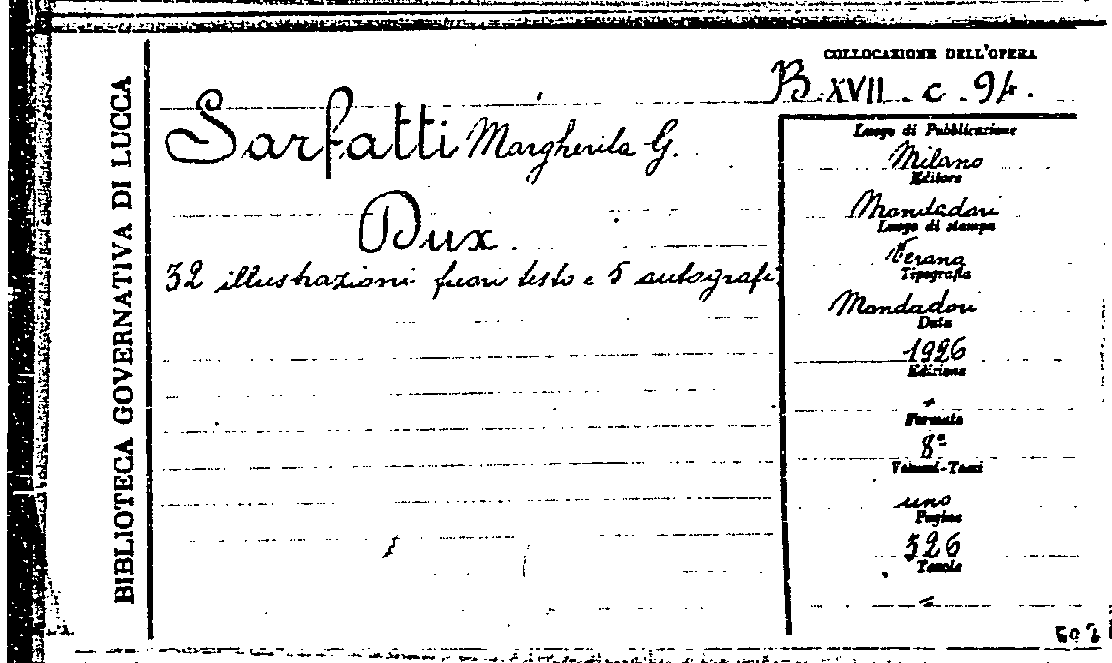 BIBLIOTECA GOVERNATIVA DI LUCCA
COLLOCAZIONE DELL'OPERA
B. XVII. c. 94.
Sarfatti Margherita G.
Dux.
32 illustrazioni fuori testo e 5 autografi.
Luogo di Pubblicazione
Milano
Editore
Mondadori
Luogo di stampa
Verona
Tipografia
Mondadori
Data
1926
Edizione
Formato
8°
Volumi-Tomi
uno
Pagine
326
Tavole